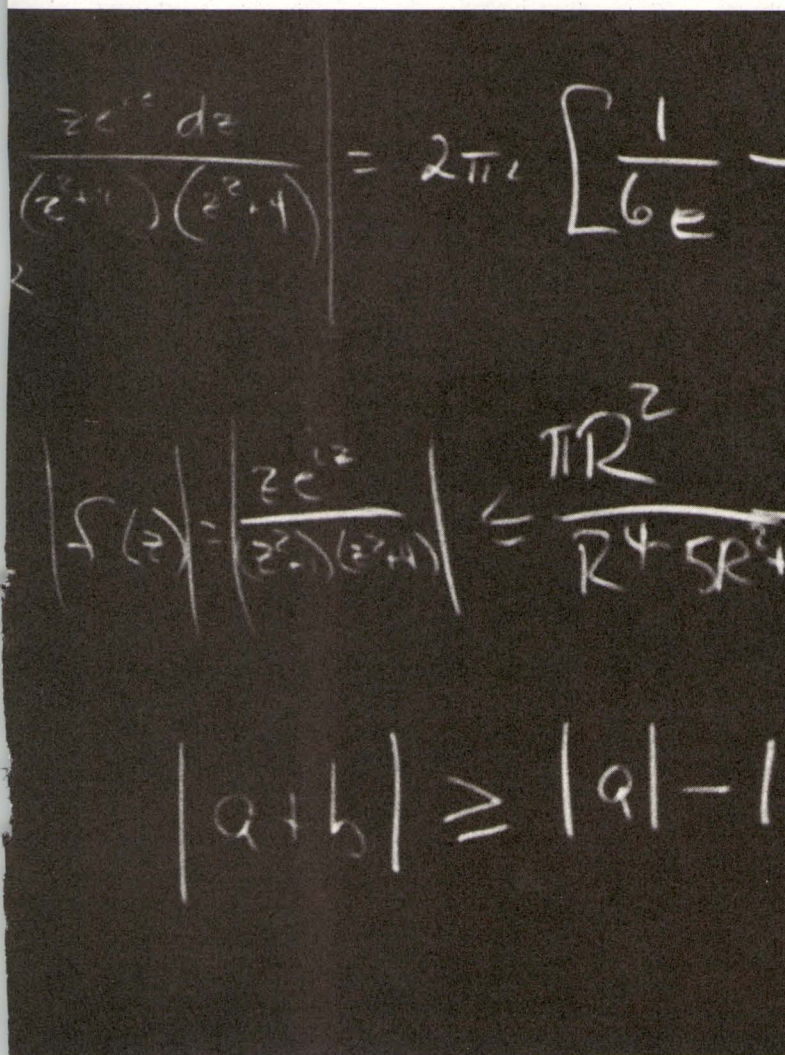 ze^{iz} dz / (z²+1)(z²+4) | = 2πi [ 1/6e −
|f(z)| = | ze^{iz} / (z²+1)(z²+4) | ≤ πR² / R⁴-5R²+
|a+b| ≥ |a| − |